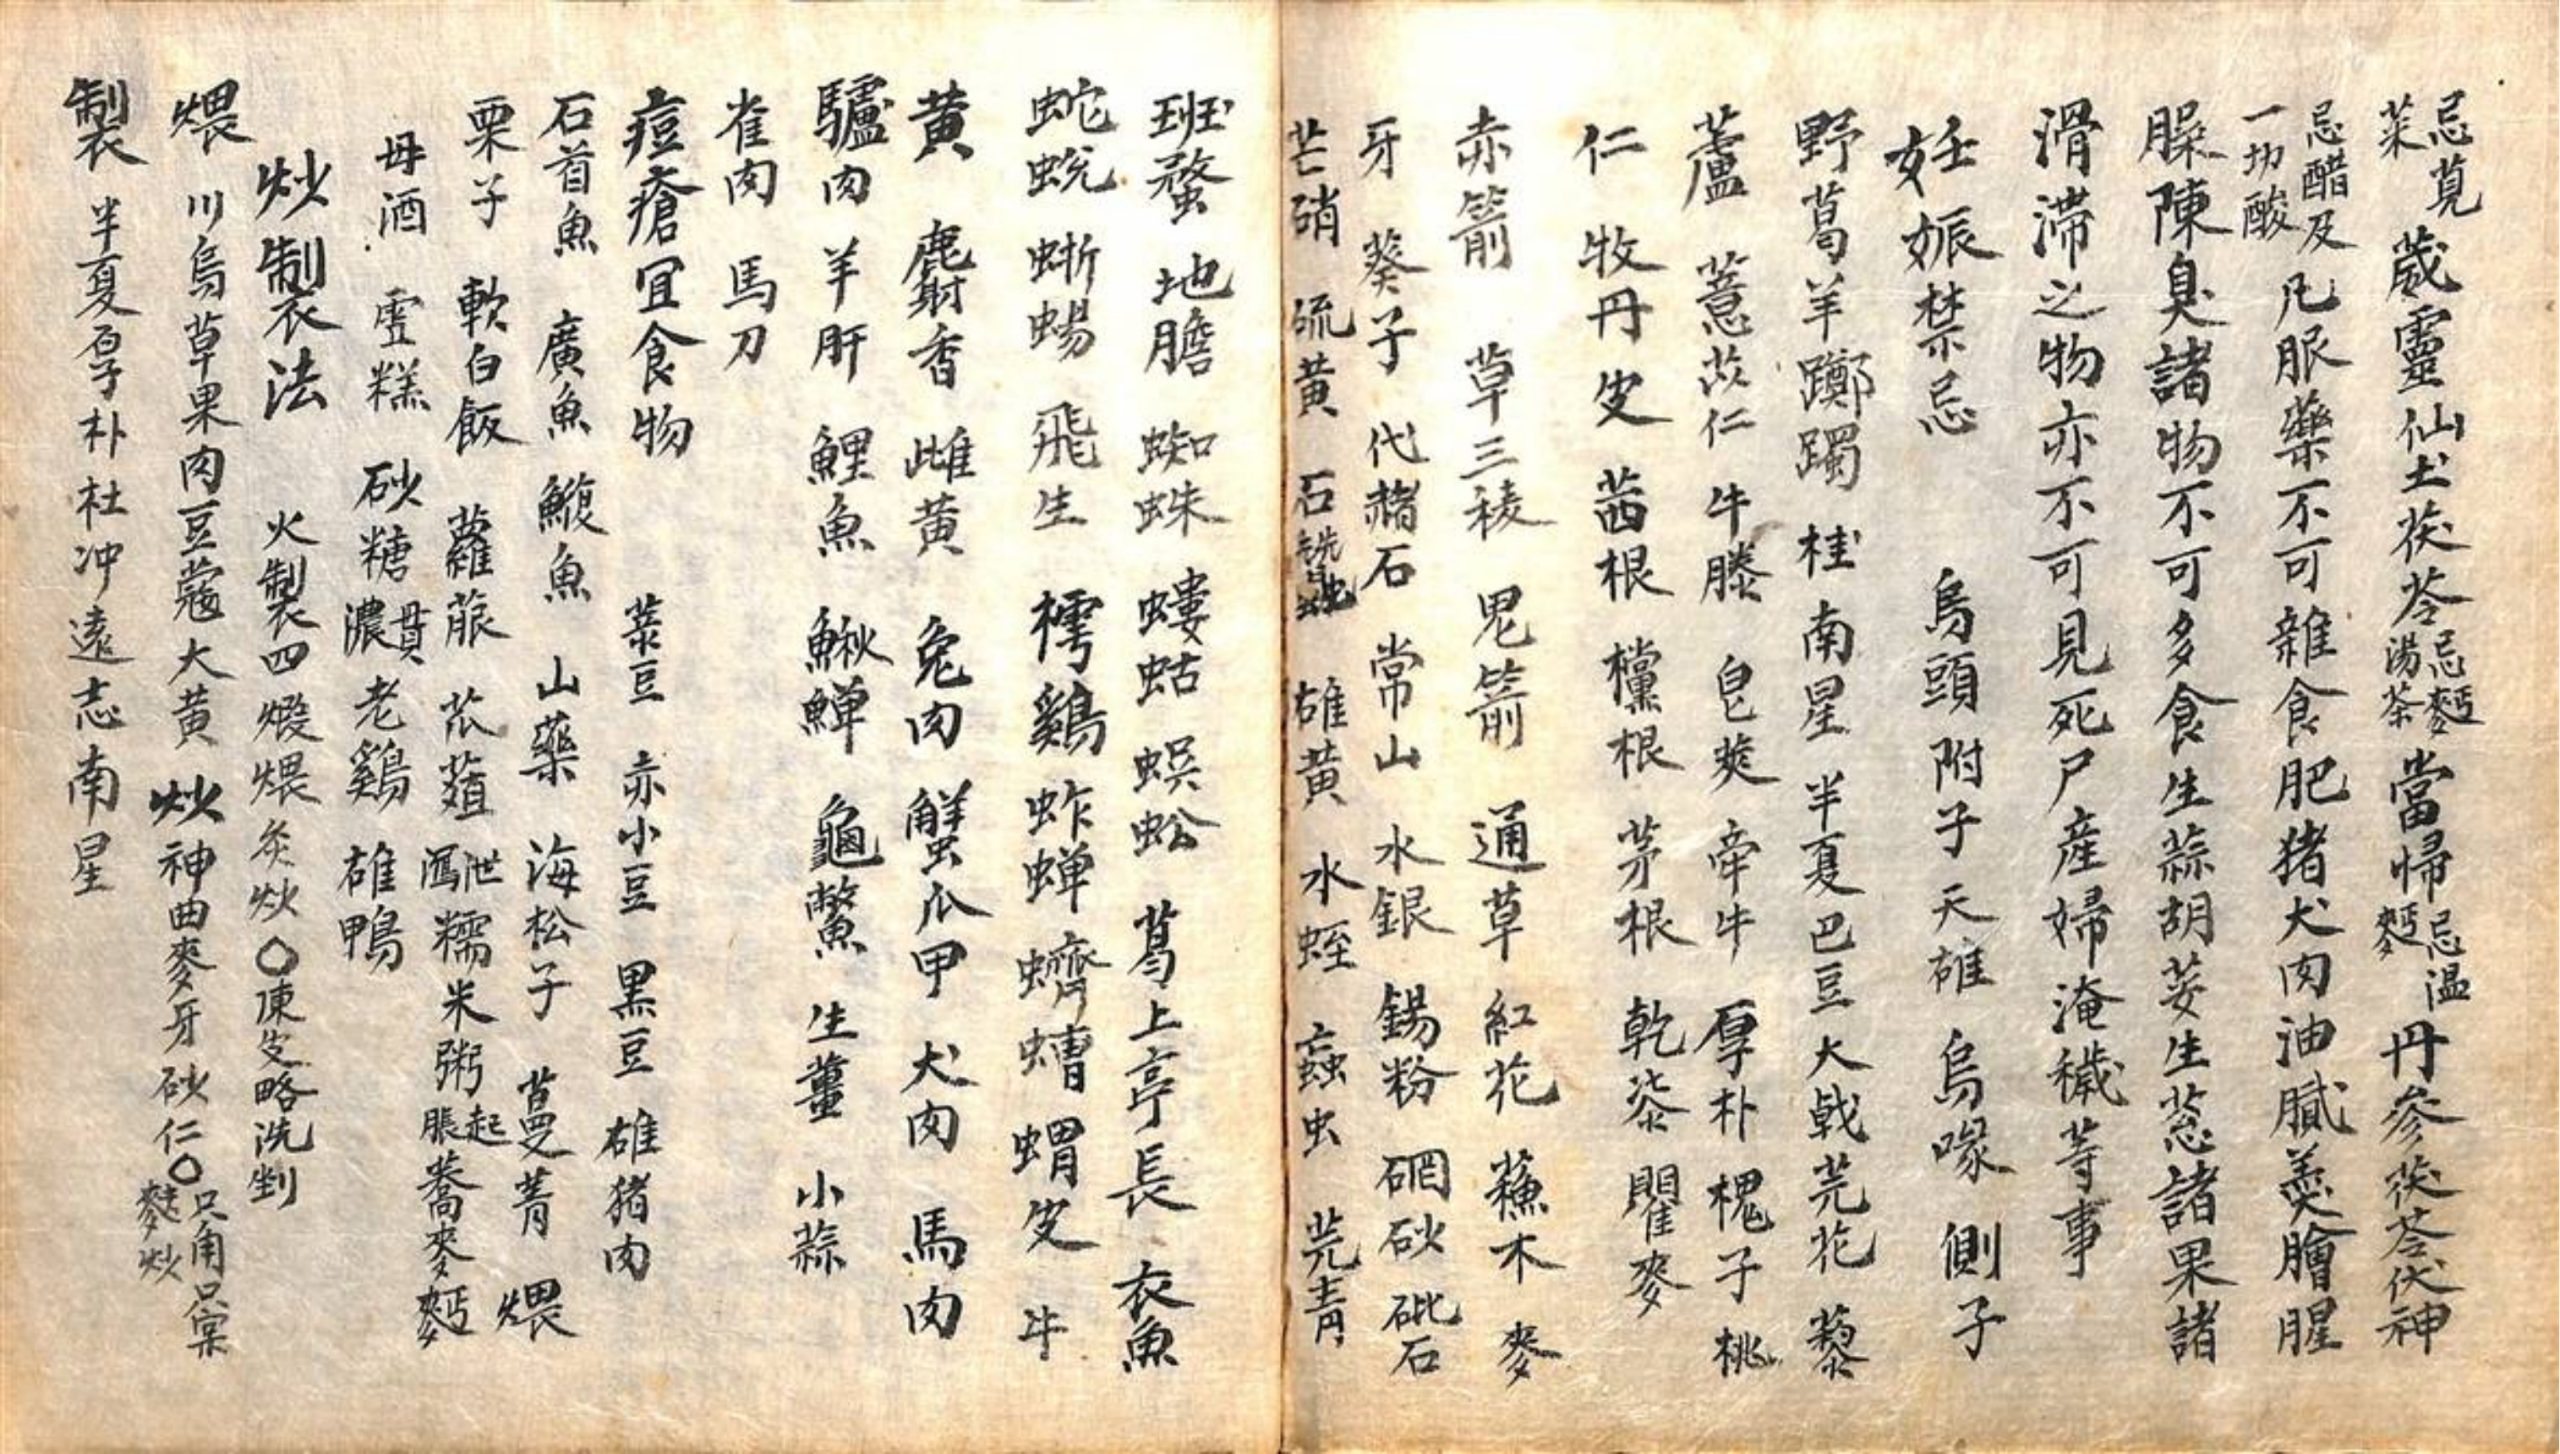 忌莧菜 葳靈仙 土茯苓 忌麪湯茶 當帰 忌温麪 丹參 茯苓 伏神
忌醋及一切酸 凡服藥不可雜食肥猪犬肉油膩羹膾腥
臊陳臭諸物不可多食生蒜胡荽生葱諸果諸
滑滞之物亦不可見死尸産婦淹穢等事
妊娠禁忌 烏頭 附子 天雄 烏喙 側子
野葛 羊躑躅 桂 南星 半夏 巴豆 大戟 芫花 藜
蘆 薏苡仁 牛膝 皂莢 牽牛 厚朴 槐子 桃
仁 牧丹皮 茜根 欓根 茅根 乾柒 瞿麥
赤箭 草三稜 鬼箭 通草 紅花 蘓木 麥
牙 葵子 代赭石 常山 水銀 錫粉 硇砂 砒石
芒硝 硫黄 石蚕 雄黄 水蛭 蝱虫 芫青
班蝥 地膽 蜘蛛 螻蛄 蜈蚣 葛上亭長 衣魚
蛇蛻 蜥蜴 飛生 樗鷄 蚱蟬 蠐螬 蝟皮 牛
黄 麝香 雌黄 兔肉 蟹瓜甲 犬肉 馬肉
驢肉 羊肝 鯉魚 鰍鱓 龜鱉 生薑 小蒜
雀肉 馬刀
痘瘡宜食物 菉豆 赤小豆 黒豆 雄猪肉
石首魚 廣魚 鰒魚 山藥 海松子 蔓菁 煨
栗子 軟白飯 蘿葍 苽葅 泄瀉 糯米粥 起脹 蕎麥麪
母酒 雪糕 砂糖 貫濃 老鷄 雄鴨
炒製法 火製四煅煨炙炒 ○陳皮略洗剉
煨 川烏草果肉豆蔲大黄 炒 神曲麥牙砂仁○只角只宲麩炒
製 半夏厚朴杜冲遠志南星